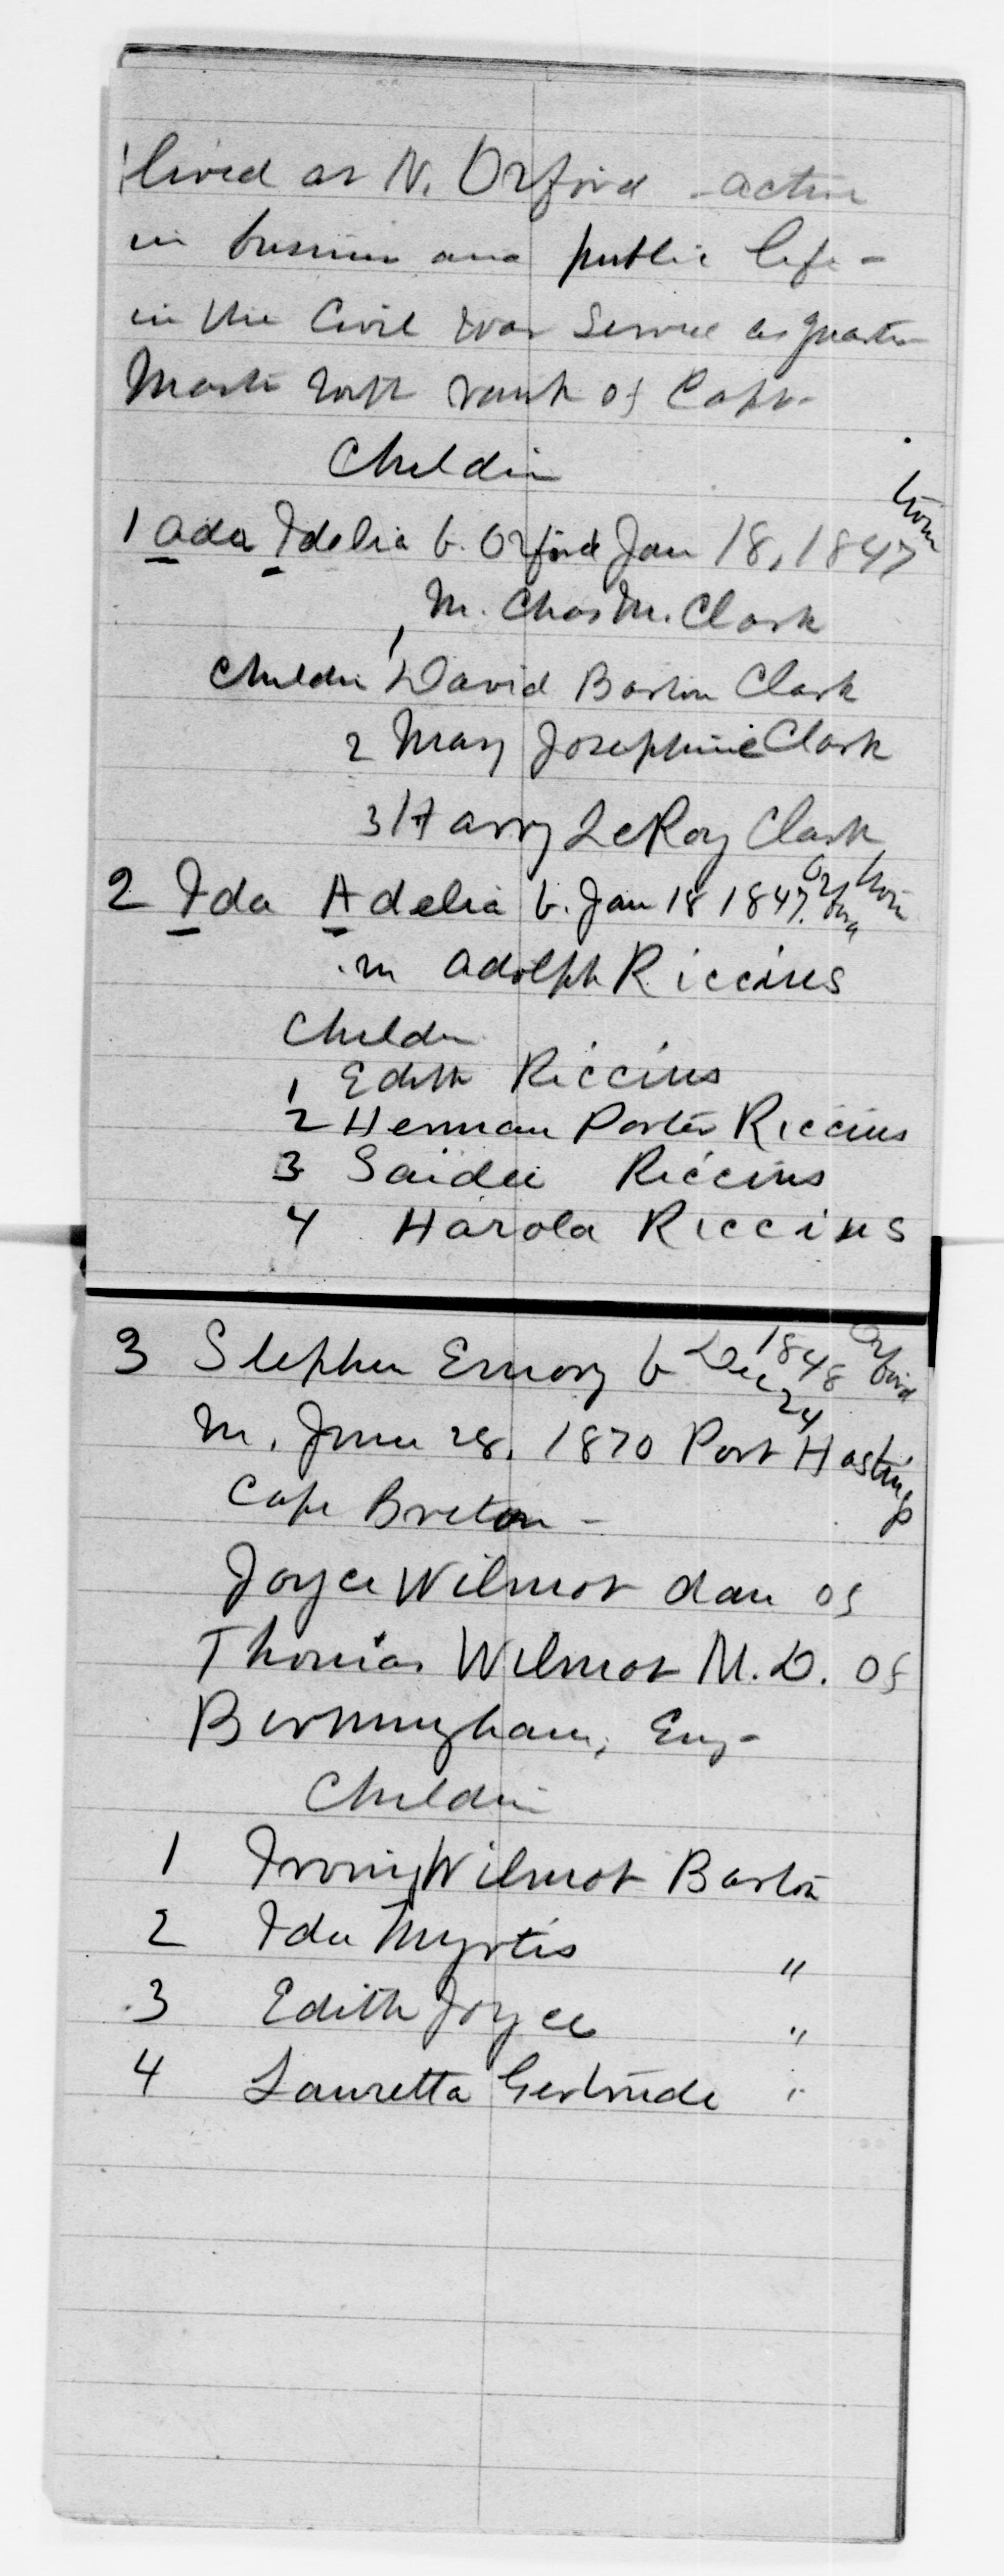 lived at N. Orford - active
in business and public life -
in the Civil War Service as Quarter
Master with rank of Capt.
Children
1 Ada Idelia b. Orford Jan 18, 1847 twin
m. Chas M. Clark
Children 1 David Barton Clark
2 Mary Josephine Clark
3 Harry LeRoy Clark
2 Ida Adelia b. Jan 18 1847. Orford twin
m Adolph Riccius
Children
1 Edith Riccius
2 Herman Porter Riccius
3 Saidee Riccius
4 Harold Riccius
3 Stephen Emory b Dec 24 1848 Orford
m. June 28, 1870 Port Hastings
Cape Breton -
Joyce Wilmot dau of
Thomas Wilmot M.D. of
Birmingham, Eng -
Children
1 Irving Wilmot Barton
2 Ida Myrtis "
3 Edith Joyce "
4 Lauretta Gertrude "